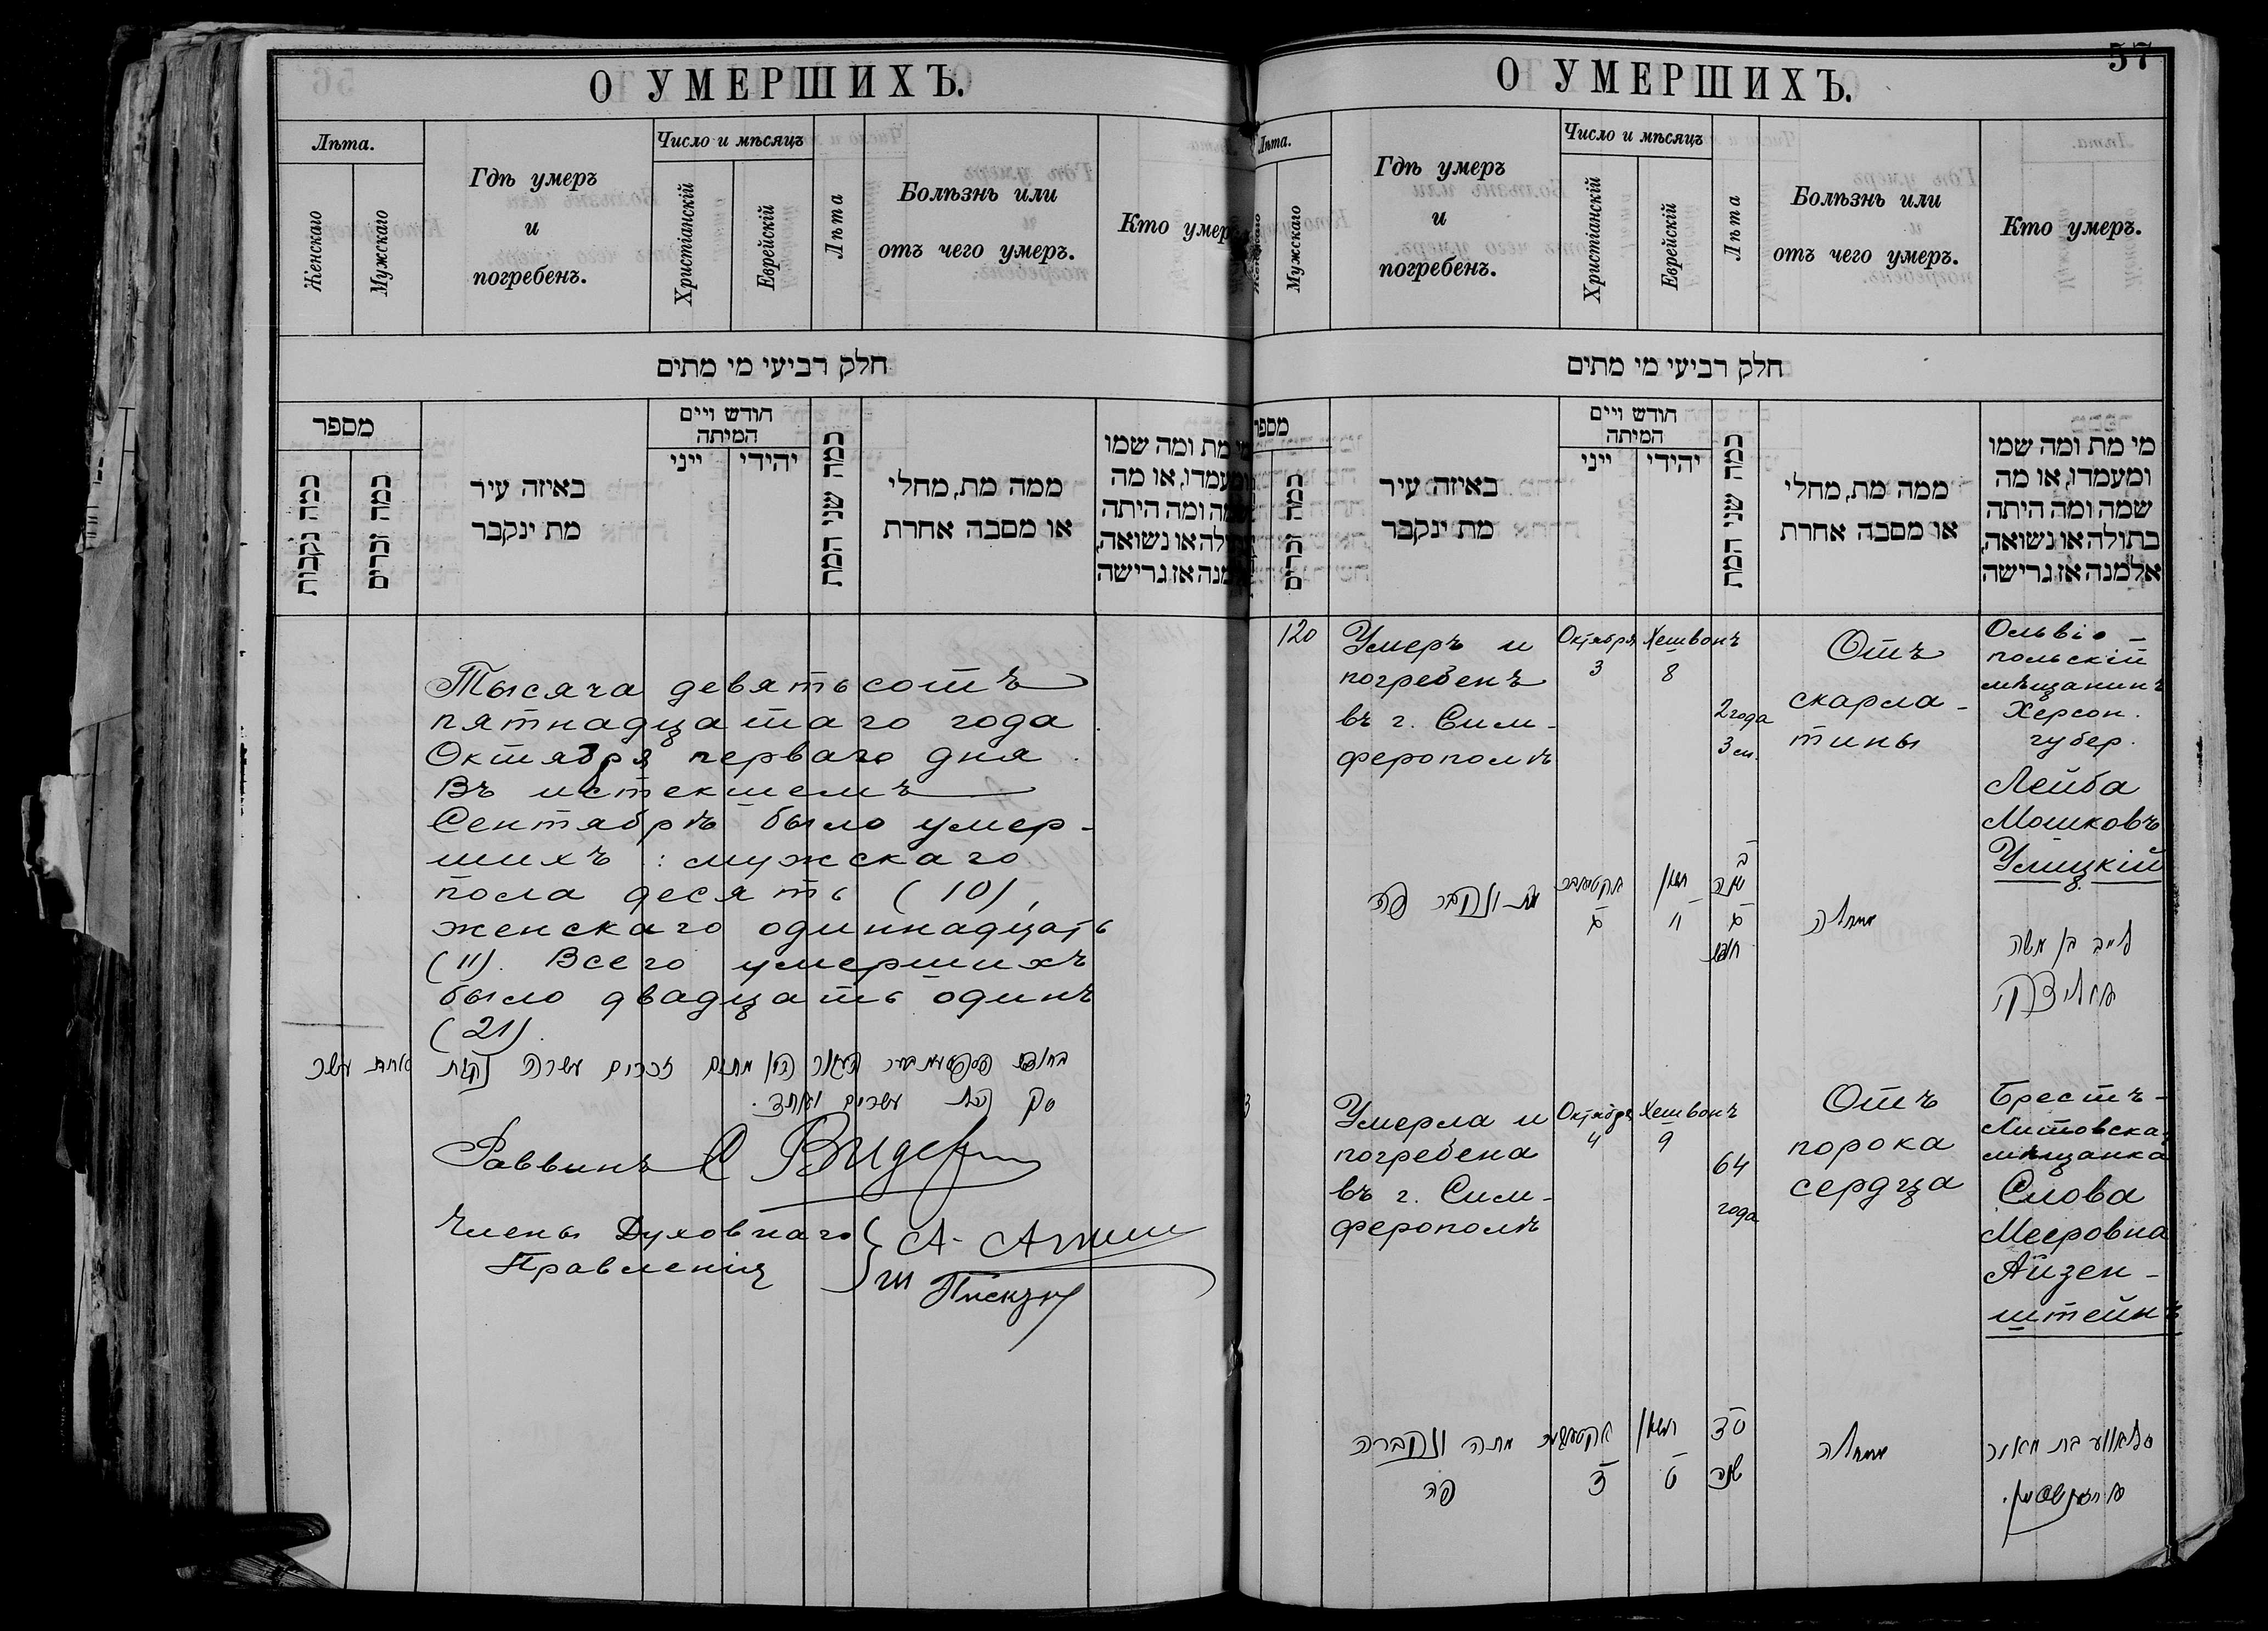 О УМЕРШИХЪ.
Лѣта.
Женскаго
Мужскаго
Гдѣ умеръ
и
погребенъ.
Число и мѣсяцъ
Христіанскій
Еврейскій
Лѣта
Болѣзнь или
отъ чего умеръ.
Кто умер
חלק רביעי מי מתים
מספר
כמה נקבות
כמה זכרים
באיזה עיר
מת ינקבר
חודש ויים
המיתה
ייני
יהודי
כמה שני המת
ממה מת, מחלי
או מסבה אחרת
מי מת ומה שמו
ומעמדו, או מה
שמה ומה היתה
בתולה או נשואה,
אלמנה או גרישה
Тысяча девятьсотъ
пятнадцатаго года
Октября перваго дня
Въ истекшемъ
Сентябрѣ было умер-
шихъ: мужскаго
пола десять (10),
женскаго одиннадцать
(11). Всего умершихъ
было двадцать одинъ
(21).
מתים זכרים עשרה נקבות אחת עשר
עשרים ואחד.
Раввинъ
Члены Духовнаго
Правленія
57
О УМЕРШИХЪ.
Лѣта.
Женскаго
Мужскаго
Гдѣ умеръ
и
погребенъ.
Число и мѣсяцъ
Христіанскій
Еврейскій
Лѣта
Болѣзнь или
отъ чего умеръ.
Кто умеръ.
חלק רביעי מי מתים
מספר
כמה זכרים
באיזה עיר
מת ינקבר
חודש ויים
המיתה
ייני
יהודי
כמה שני המת
ממה מת, מחלי
או מסבה אחרת
מי מת ומה שמו
ומעמדו, או מה
שמה ומה היתה
בתולה או נשואה,
אלמנה או גרישה
120
Умеръ и
погребенъ
въ г. Сим-
ферополѣ
Октября
3
Хешвонъ
8
2 года
3 м.
Отъ
скарла-
тины
Ольвіо-
польскій
мѣщанинъ
Херсон.
губер.
Лейба
Мошковъ
Улицкій
מת ונקבר פה
חשון
ב
שנה
ג
חדש
ממחלה
לייב בן משה
Умерла и
погребена
въ г. Сим-
ферополѣ
Октября
4
Хешвонъ
9
64
года
Отъ
порока
сердца
Брестъ-
Литовская
мѣщанка
Слова
Мееровна
Айзен-
штейнъ
מתה ונקברה
פה
ד
חשון
ט
סד
שנה
ממחלה
סלאווע בת מאיר